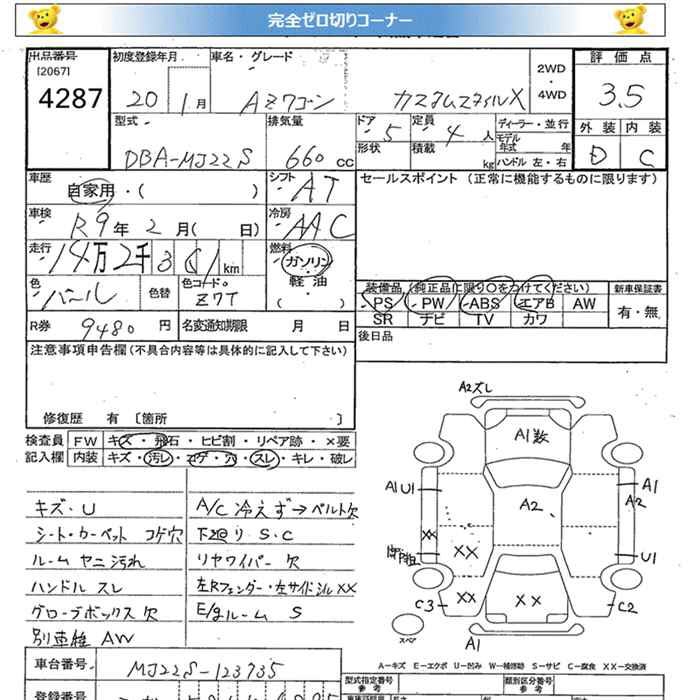 完全ゼロ切りコーナー
出品番号 初度登録年月 車名・グレード 2WD・4WD 評価点
[2067]
4287 20 1月 AZワゴン カスタムスタイルX 3.5
型式 排気量 ドア 5 定員 4人 ディーラー・並行 外装 内装
形状 積載 kg モデル年式 年 ハンドル 左・右
DBA-MJ22S 660cc D C
車歴 自家用・( ) シフト AT セールスポイント (正常に機能するものに限ります)
車検 R9年2月( 日) 冷房 AAC
走行 14万2千3 1km 燃料 ガソリン・軽油( )
色 パール 色替 色コードNo Z7T
装備品 (純正品に限り〇をつけてください) 新車保証書
PS PW ABS エアB AW 有・無
SR ナビ TV カワ
R券 9480円 名変通知期限 月 日
後日品
注意事項申告欄(不具合内容等は具体的に記入して下さい)
修復歴 有 〔箇所 〕
検査員 FW キズ・飛石・ヒビ割・リペア跡・×要
記入欄 内装 キズ・汚レ・コゲ・穴・スレ・キレ・破レ
キズ・U
シート・カーペット コゲ穴
ルーム ヤニ汚れ
ハンドル スレ
グローブボックス 欠
別車種 AW
A/C 冷えず→ベルト欠
下廻り S・C
リヤワイパー 欠
左Rフェンダー・左サイドシル XX
E/gルーム S
A2ズレ
A1数
A1U1 A1
A2 A2
XX
XX U1
XX XX
C3 C2
スペア
A1
A-キズ E-エクボ U-凹み W-補修跡 S-サビ C-腐食 XX-交換済
車台番号 MJ22S-123735
型式指定番号 類別区分番号
参考 参考
登録番号